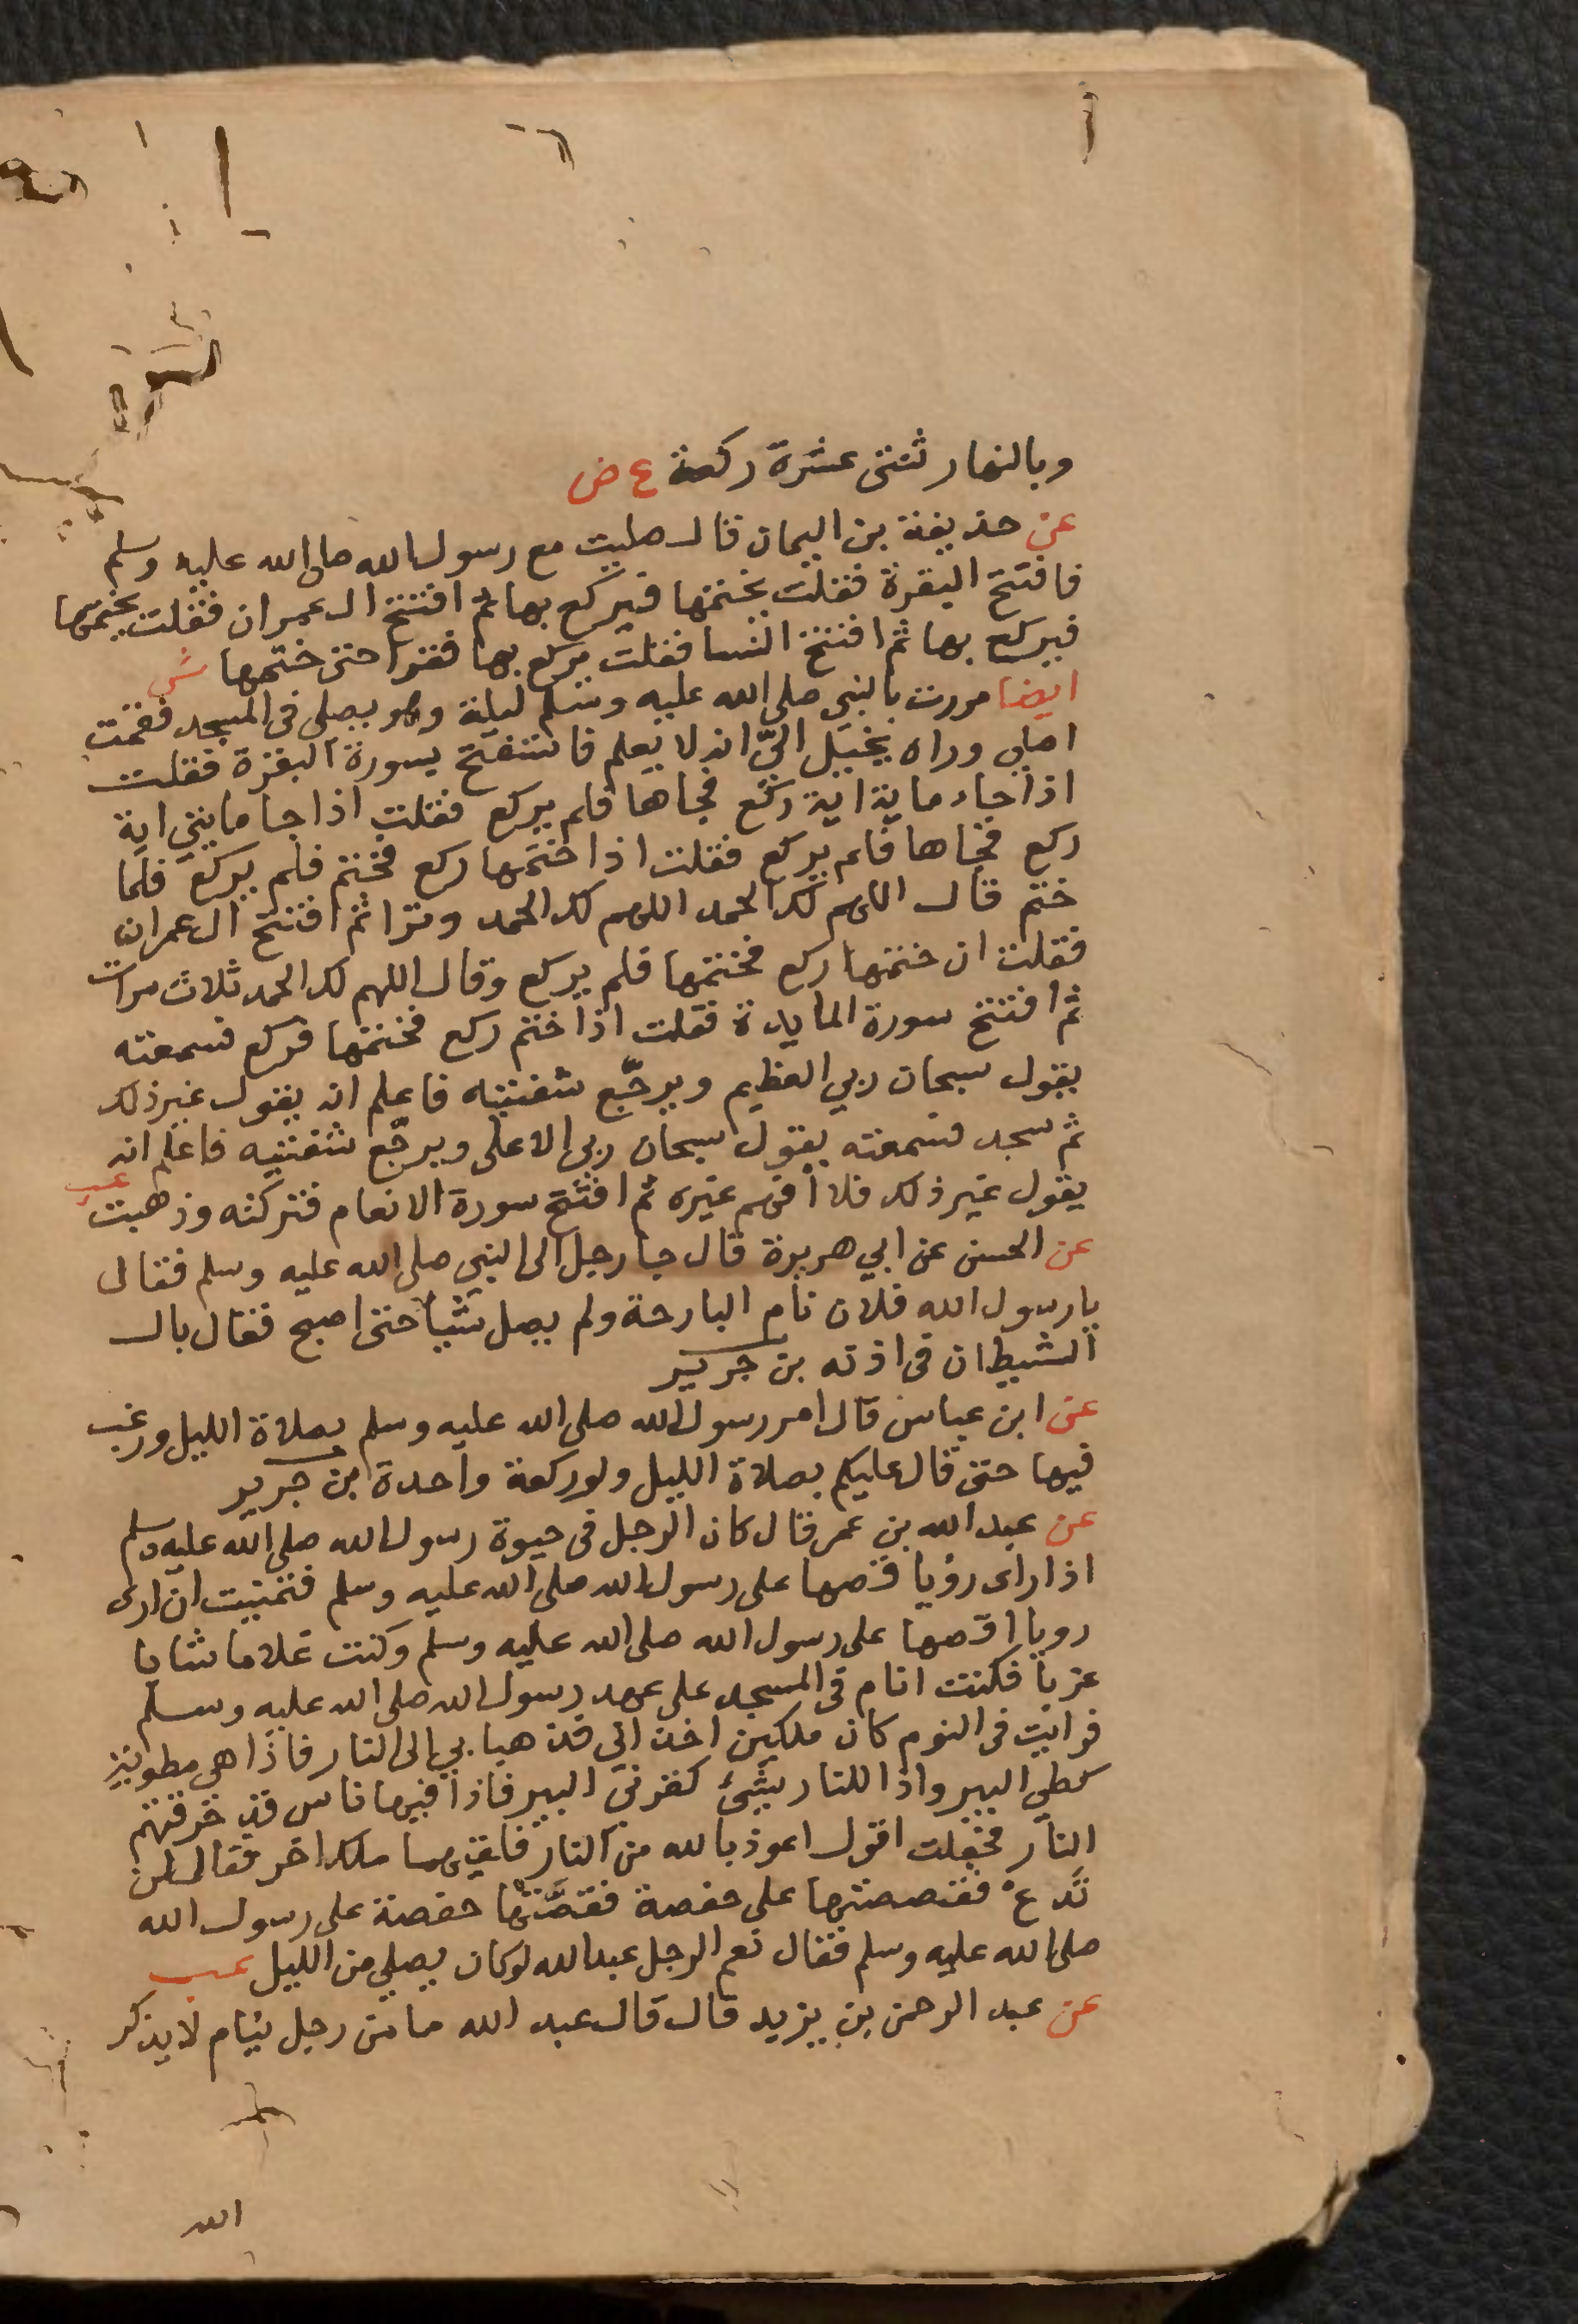 وبالنهار ثنتى عشرة ركعة ع ض
عن حذيفة بن اليمان قال صليت مع رسول الله صلى الله عليه وسلم
فافتتح البقرة فقلت يختمها فيركع بها ثم افتتح ال عمران فقلت يختمها
فيركع بها ثم افتتح النسا فقلت يركع بها فقرا حتى ختمها ش
ايضا مررت بالنبي صلى الله عليه وسلم ليلة وهو يصلى فى المسجد فقمت
اصلي وراه يخيل الىّ انه لا يعلم فاستفتح بسورة البقرة فقلت
اذا جاء ماية اية ركع فجاها فلم يركع فقلت اذا جا مايتي اية
ركع فجاها فلم يركع فقلت اذا ختمها ركع فختم فلم يركع فلما
ختم قال اللهم لك الحمد اللهم لك الحمد وترا ثم افتتح ال عمران
فقلت ان ختمها ركع فختمها فلم يركع وقال اللهم لك الحمد ثلاث مرات
ثم افتتح سورة المايدة فقلت اذا ختم ركع فختمها فركع فسمعته
يقول سبحان ربي العظيم ويرجّع شفتيه فاعلم انه يقول غير ذلك
ثم سجد فسمعته يقول سبحان ربي الاعلى ويرجّع شفتيه فاعلم انه
يقول غير ذلك فلا افهم غيره ثم افتتح سورة الانعام فتركته وذهبت عب
عن الحسن عن ابي هريرة قال جا رجل الى النبي صلى الله عليه وسلم فقال
يا رسول الله فلان نام البارحة ولم يصل شيأ حتى اصبح فقال بال
الشيطان فى اذنه بن جرير
عن ابن عباس قال امر رسول الله صلى الله عليه وسلم بصلاة الليل ورغب
فيها حتى قال عليكم بصلاة الليل ولو ركعة واحدة بن جرير
عن عبد الله بن عمر قال كان الرجل فى حيوة رسول الله صلى الله عليه وسلم
اذا راى رؤيا قصها على رسول الله صلى الله عليه وسلم فتمنيت ان ارى
رويا اقصها على رسول الله صلى الله عليه وسلم وكنت غلاما شابا
عزبا فكنت انام فى المسجد على عهد رسول الله صلى الله عليه وسلم
فرايت فى النوم كان ملكين اخذاني فذهبا بي الى النار فاذا هي مطوية
كطي البير واذا للنار بشئ كقرني البير فاذا فيها ناس قد
النار فجعلت اقول اعوذ بالله من النار فلقيهما ملك اخر فقال لن
تُدعْ فقصصتها على حفصة فقصَّتها حفصة على رسول الله
صلى الله عليه وسلم فقال نعم الرجل عبد الله لو كان يصلي من الليل عب
عن عبد الرحمن بن يزيد قال قال عبد الله ما من رجل ينام لا يذكر
الله